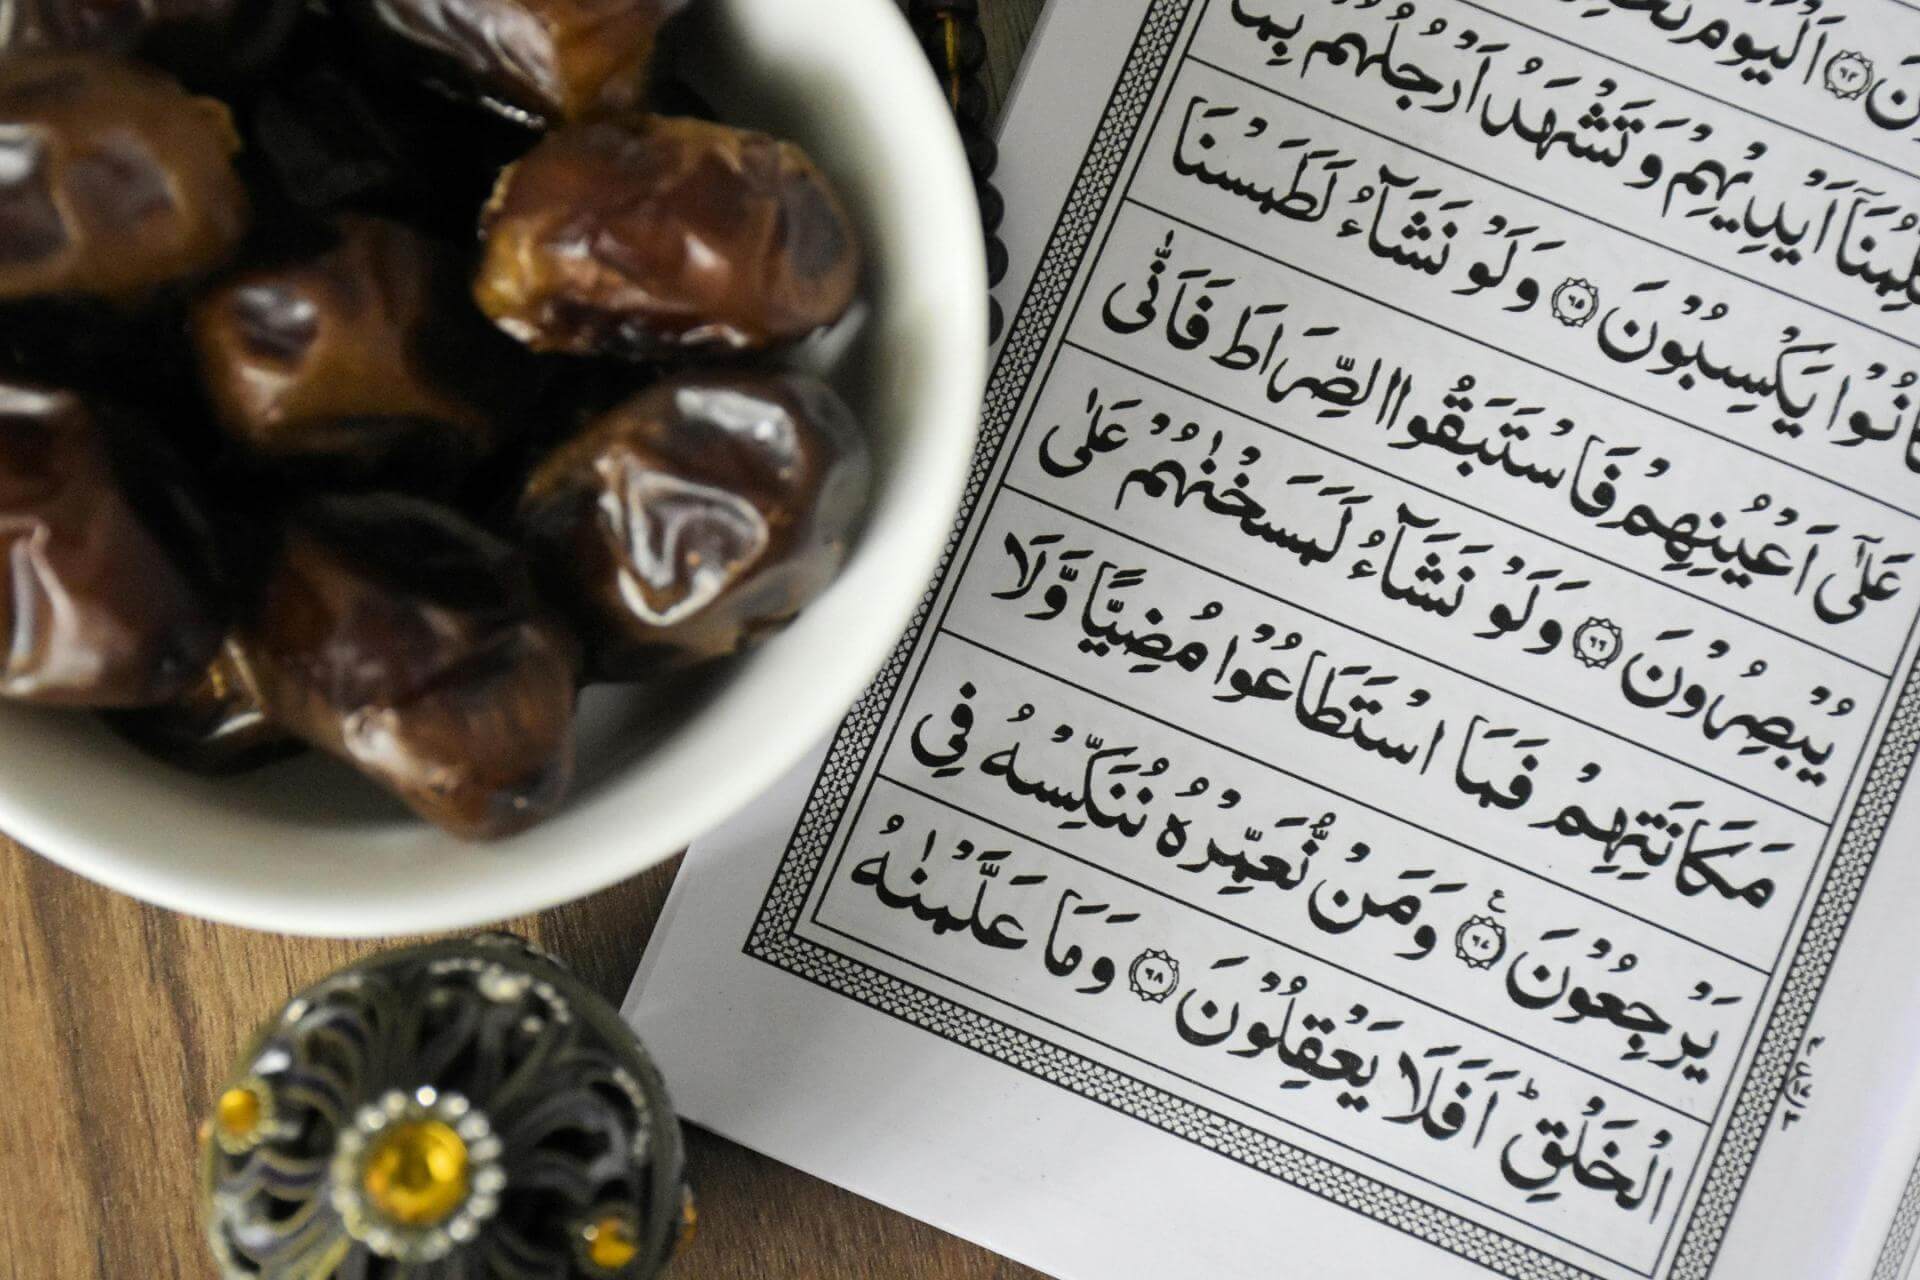 اَلْيَوْمَ
اَيْدِيْهِمْ وَتَشْهَدُ اَرْجُلُهُمْ بِمَا
يَكْسِبُوْنَ ۝٦٥ وَلَوْ نَشَآءُ لَطَمَسْنَا
عَلٰٓى اَعْيُنِهِمْ فَاسْتَبَقُوا الصِّرَاطَ فَاَنّٰى
يُبْصِرُوْنَ ۝٦٦ وَلَوْ نَشَآءُ لَمَسَخْنٰهُمْ عَلٰى
مَكَانَتِهِمْ فَمَا اسْتَطَاعُوْا مُضِيًّا وَّلَا
يَرْجِعُوْنَ ۝٦٧ وَمَنْ نُّعَمِّرْهُ نُنَكِّسْهُ فِى
الْخَلْقِ ؕ اَفَلَا يَعْقِلُوْنَ ۝٦٨ وَمَا عَلَّمْنٰهُ